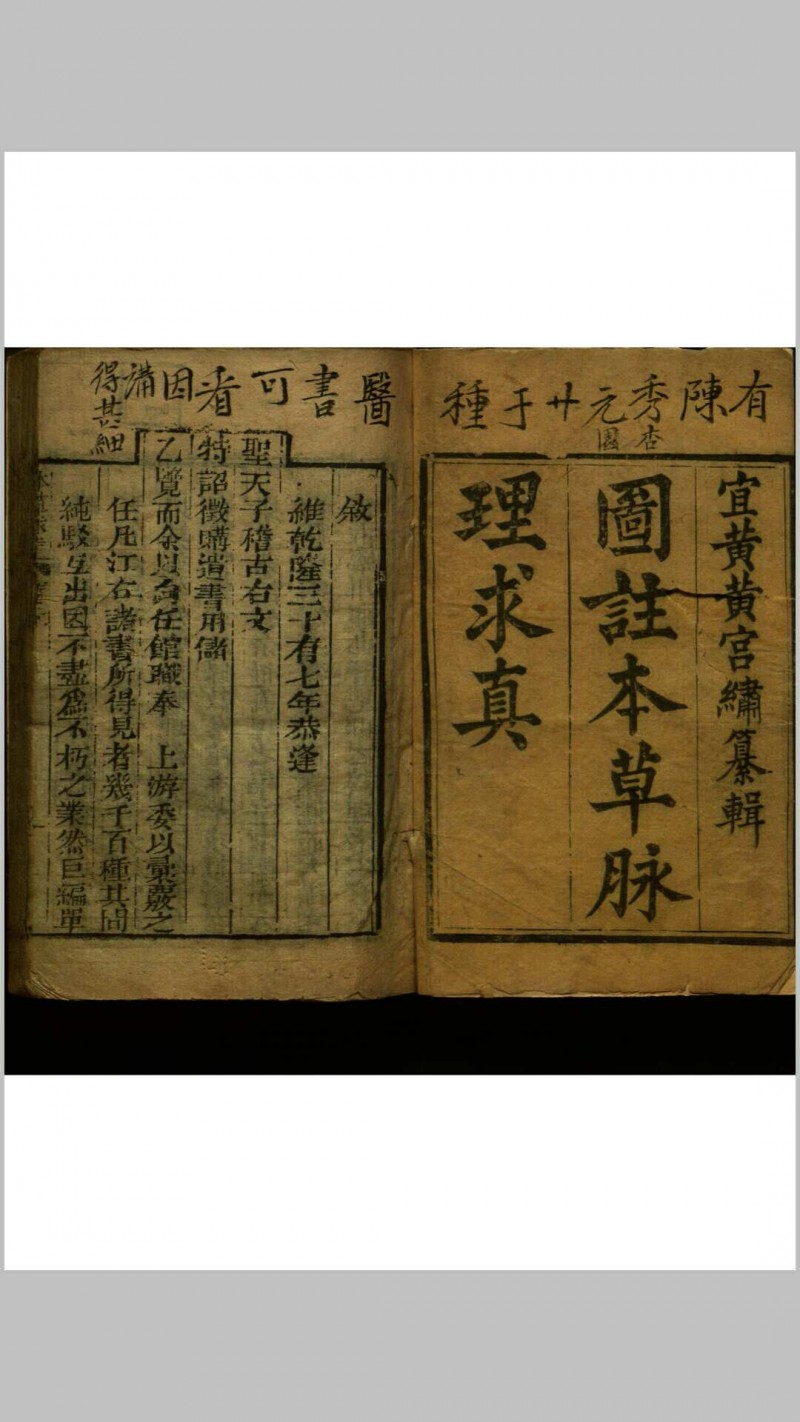 有陳秀元廿于種
杏園
宜黃黃宮繡纂輯
圖註本草脉
理求真
醫書可看因講
得甚細
敘
維乾隆三十有七年恭逢
聖天子稽古右文
特詔徵購遺書用備
乙覽而余以向任館職奉 上游委以彙覈之
任凡江右諸書所得見者幾千百種其間
純駁互出因不盡爲不朽之業然巨編單